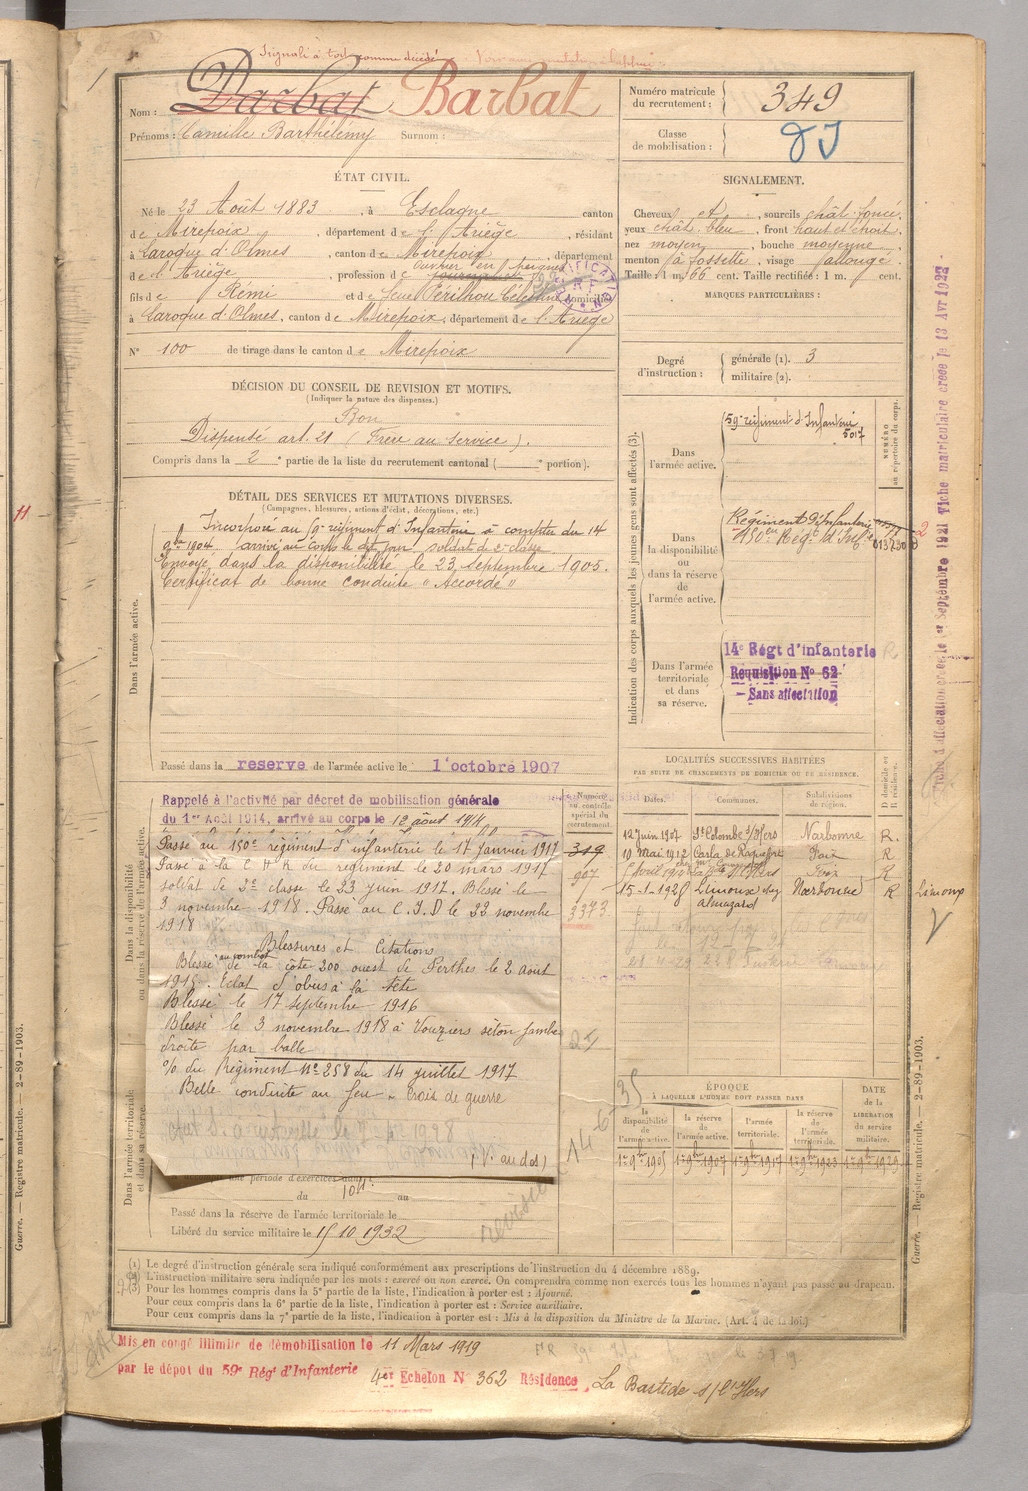 Signalé à tort comme décédé
Nom : Darbat Barbat
Prénoms : Camille Barthélémy Surnom :
ÉTAT CIVIL.
Né le 23 Août 1883, à Esclagne canton
de Mirepoix, département de l'Ariège, résidant
à Laroque d'Olmes, canton de Mirepoix, département
de l'Ariège, profession de ouvrier en peignes
fils de Rémi et de feue Périlhou Célestine domicilié
à Laroque d'Olmes, canton de Mirepoix, département de l'Ariège
N° 100 de tirage dans le canton de Mirepoix
DÉCISION DU CONSEIL DE REVISION ET MOTIFS.
(Indiquer la nature des dispenses.)
Bon
Dispensé art. 21 (Frère au service).
Compris dans la 2e partie de la liste du recrutement cantonal ( e portion).
DÉTAIL DES SERVICES ET MUTATIONS DIVERSES.
(Campagnes, blessures, actions d'éclat, décorations, etc.)
Dans l'armée active.
Incorporé au 59e régiment d'Infanterie à compter du 14
9bre 1904 arrivé au corps le dit jour soldat de 2e classe
Envoyé dans la disponibilité le 23 septembre 1905.
Certificat de bonne conduite "Accordé"
Passé dans la réserve de l'armée active le 1er octobre 1907
Dans la disponibilité
ou dans la réserve de l'armée active.
Rappelé à l'activité par décret de mobilisation générale
du 1er Août 1914, arrivé au corps le 12 août 1914
Passé au 150e régiment d'infanterie le 17 Janvier 1917
Passé à la C H R du régiment le 20 mars 1917
soldat de 2e classe le 23 juin 1917. Blessé le
3 novembre 1918. Passé au C.I.D le 22 novembre
1918
Blessures et Citations
Blessé au combat de la côte 200 ouest de Perthes le 2 août
1915. Eclat d'obus à la tête
Blessé le 17 septembre 1916
Blessé le 3 novembre 1918 à Vouziers séton jambe
droite par balle
O/ du Régiment N° 258 du 14 juillet 1917
Belle conduite au feu - Croix de guerre
(V. au dos)
Dans l'armée territoriale
et dans sa réserve.
une période d'exercices dans
du au
Passé dans la réserve de l'armée territoriale le
Libéré du service militaire le 15 10 1932
Numéro
au contrôle
spécial du
recrutement.
349
907
3373
Numéro matricule
du recrutement : 349
Classe
de mobilisation :
SIGNALEMENT.
Cheveux et, sourcils chât. foncé,
yeux chât. bleu, front haut et droit,
nez moyen, bouche moyenne,
menton à fossette, visage allongé.
Taille : 1 m. 66 cent. Taille rectifiée : 1 m. cent.
MARQUES PARTICULIÈRES :
Degré
d'instruction :
générale (1). 3
militaire (2).
Indication des corps auxquels les jeunes gens sont affectés (3).
NUMÉRO
au répertoire du corps.
Dans
l'armée active.
59e régiment d'Infanterie
5017
Dans
la disponibilité
ou
dans la réserve
de
l'armée active.
Régiment d'Infanterie
150e Régt d'Infie
Dans l'armée
territoriale
et dans
sa réserve.
14e Régt d'infanterie
Requisition N° 62
- Sans affectation
LOCALITÉS SUCCESSIVES HABITÉES
PAR SUITE DE CHANGEMENTS DE DOMICILE OU DE RÉSIDENCE.
Dates. Communes. Subdivisions de région. D domicile ou R résidence.
12 Juin 1907 Ste Colombe s/Hers Narbonne R.
10 Mai 1912 Carla de Roquefort Foix R
Foix R
15-1-1928 Limoux chez Narbonne R Limoux
Almazard
ÉPOQUE
À LAQUELLE L'HOMME DOIT PASSER DANS
la disponibilité de l'armée active.
la réserve de l'armée active.
l'armée territoriale.
la réserve de l'armée territoriale.
DATE
de la
LIBÉRATION
du
service
militaire.
1er 9bre 1905 1er 9bre 1907 1er 9bre 1917 1er 9bre 1923 1er 9bre 1929
(1) Le degré d'instruction générale sera indiqué conformément aux prescriptions de l'instruction du 4 décembre 1889.
(2) L'instruction militaire sera indiquée par les mots : exercé ou non exercé. On comprendra comme non exercés tous les hommes n'ayant pas passé au drapeau.
(3) Pour les hommes compris dans la 5e partie de la liste, l'indication à porter est : Ajourné.
Pour ceux compris dans la 6e partie de la liste, l'indication à porter est : Service auxiliaire.
Pour ceux compris dans la 7e partie de la liste, l'indication à porter est : Mis à la disposition du Ministre de la Marine. (Art. 4 de la loi.)
Mis en congé illimité de démobilisation le 11 Mars 1919
par le dépôt du 59e Régt d'Infanterie
4er Echelon N° 362 Résidence, La Bastide s/l'Hers
Fiche d'affectation créée le 1er Septembre 1921 Fiche matriculaire créée le 13 Avr 1922
Guerre. — Registre matricule. — 2-89-1903.
Guerre. — Registre matricule. — 2-89-1903.